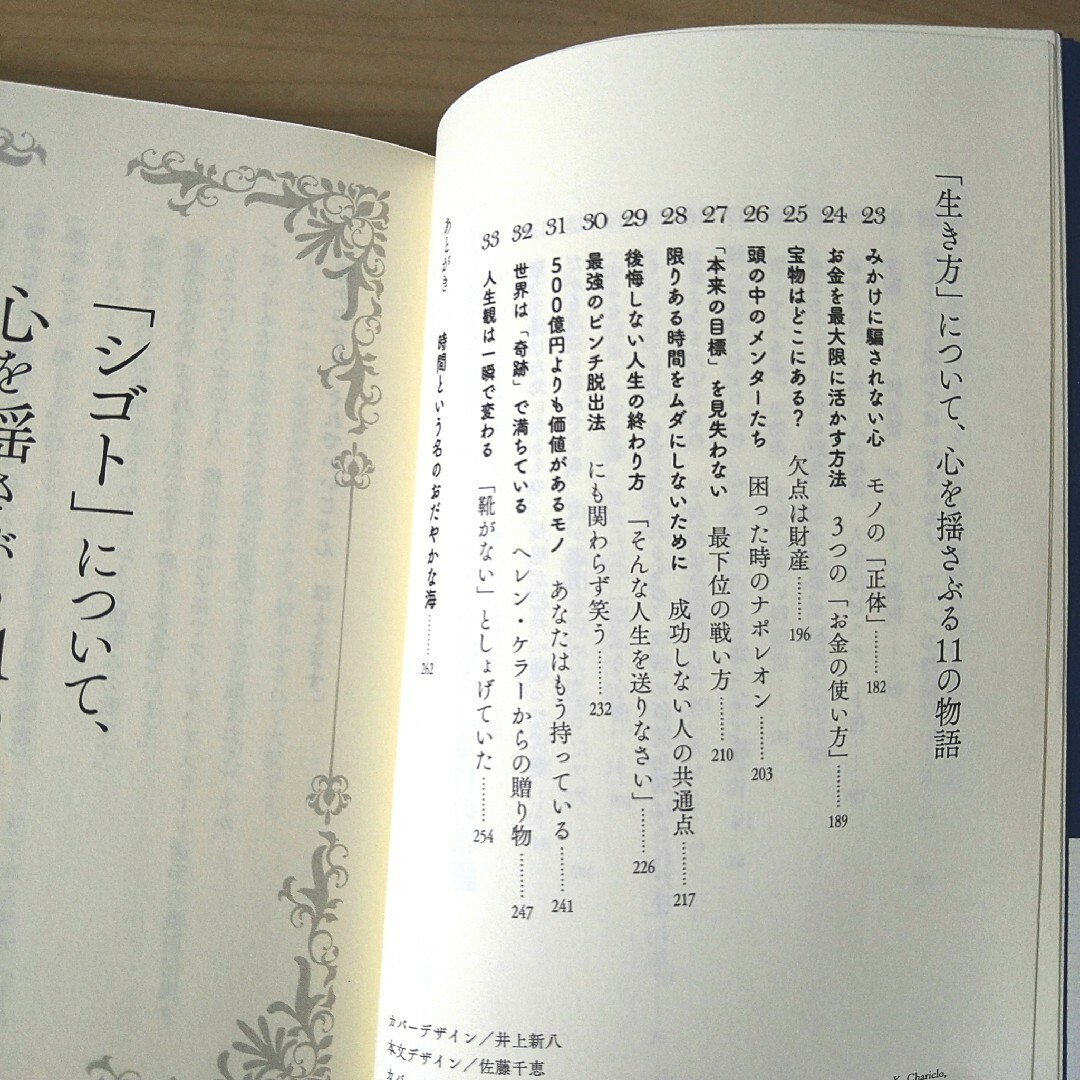 「生き方」について、心を揺さぶる11の物語
23 みかけに騙されない心 モノの「正体」………182
24 お金を最大限に活かす方法 3つの「お金の使い方」………189
25 宝物はどこにある? 欠点は財産………196
26 頭の中のメンターたち 困った時のナポレオン………203
27 「本来の目標」を見失わない 最下位の戦い方………210
28 限りある時間をムダにしないために 成功しない人の共通点………217
29 後悔しない人生の終わり方 「そんな人生を送りなさい」………226
30 最強のピンチ脱出法 にも関わらず笑う………232
31 500億円よりも価値があるモノ あなたはもう持っている………241
32 世界は「奇跡」で満ちている ヘレン・ケラーからの贈り物………247
33 人生観は一瞬で変わる 「靴がない」としょげていた………254
あとがき 時間という名のおだやかな海………262
カバーデザイン/井上新八
本文デザイン/佐藤千恵
K. Chariclo,
「シゴト」について、
心を揺さぶ